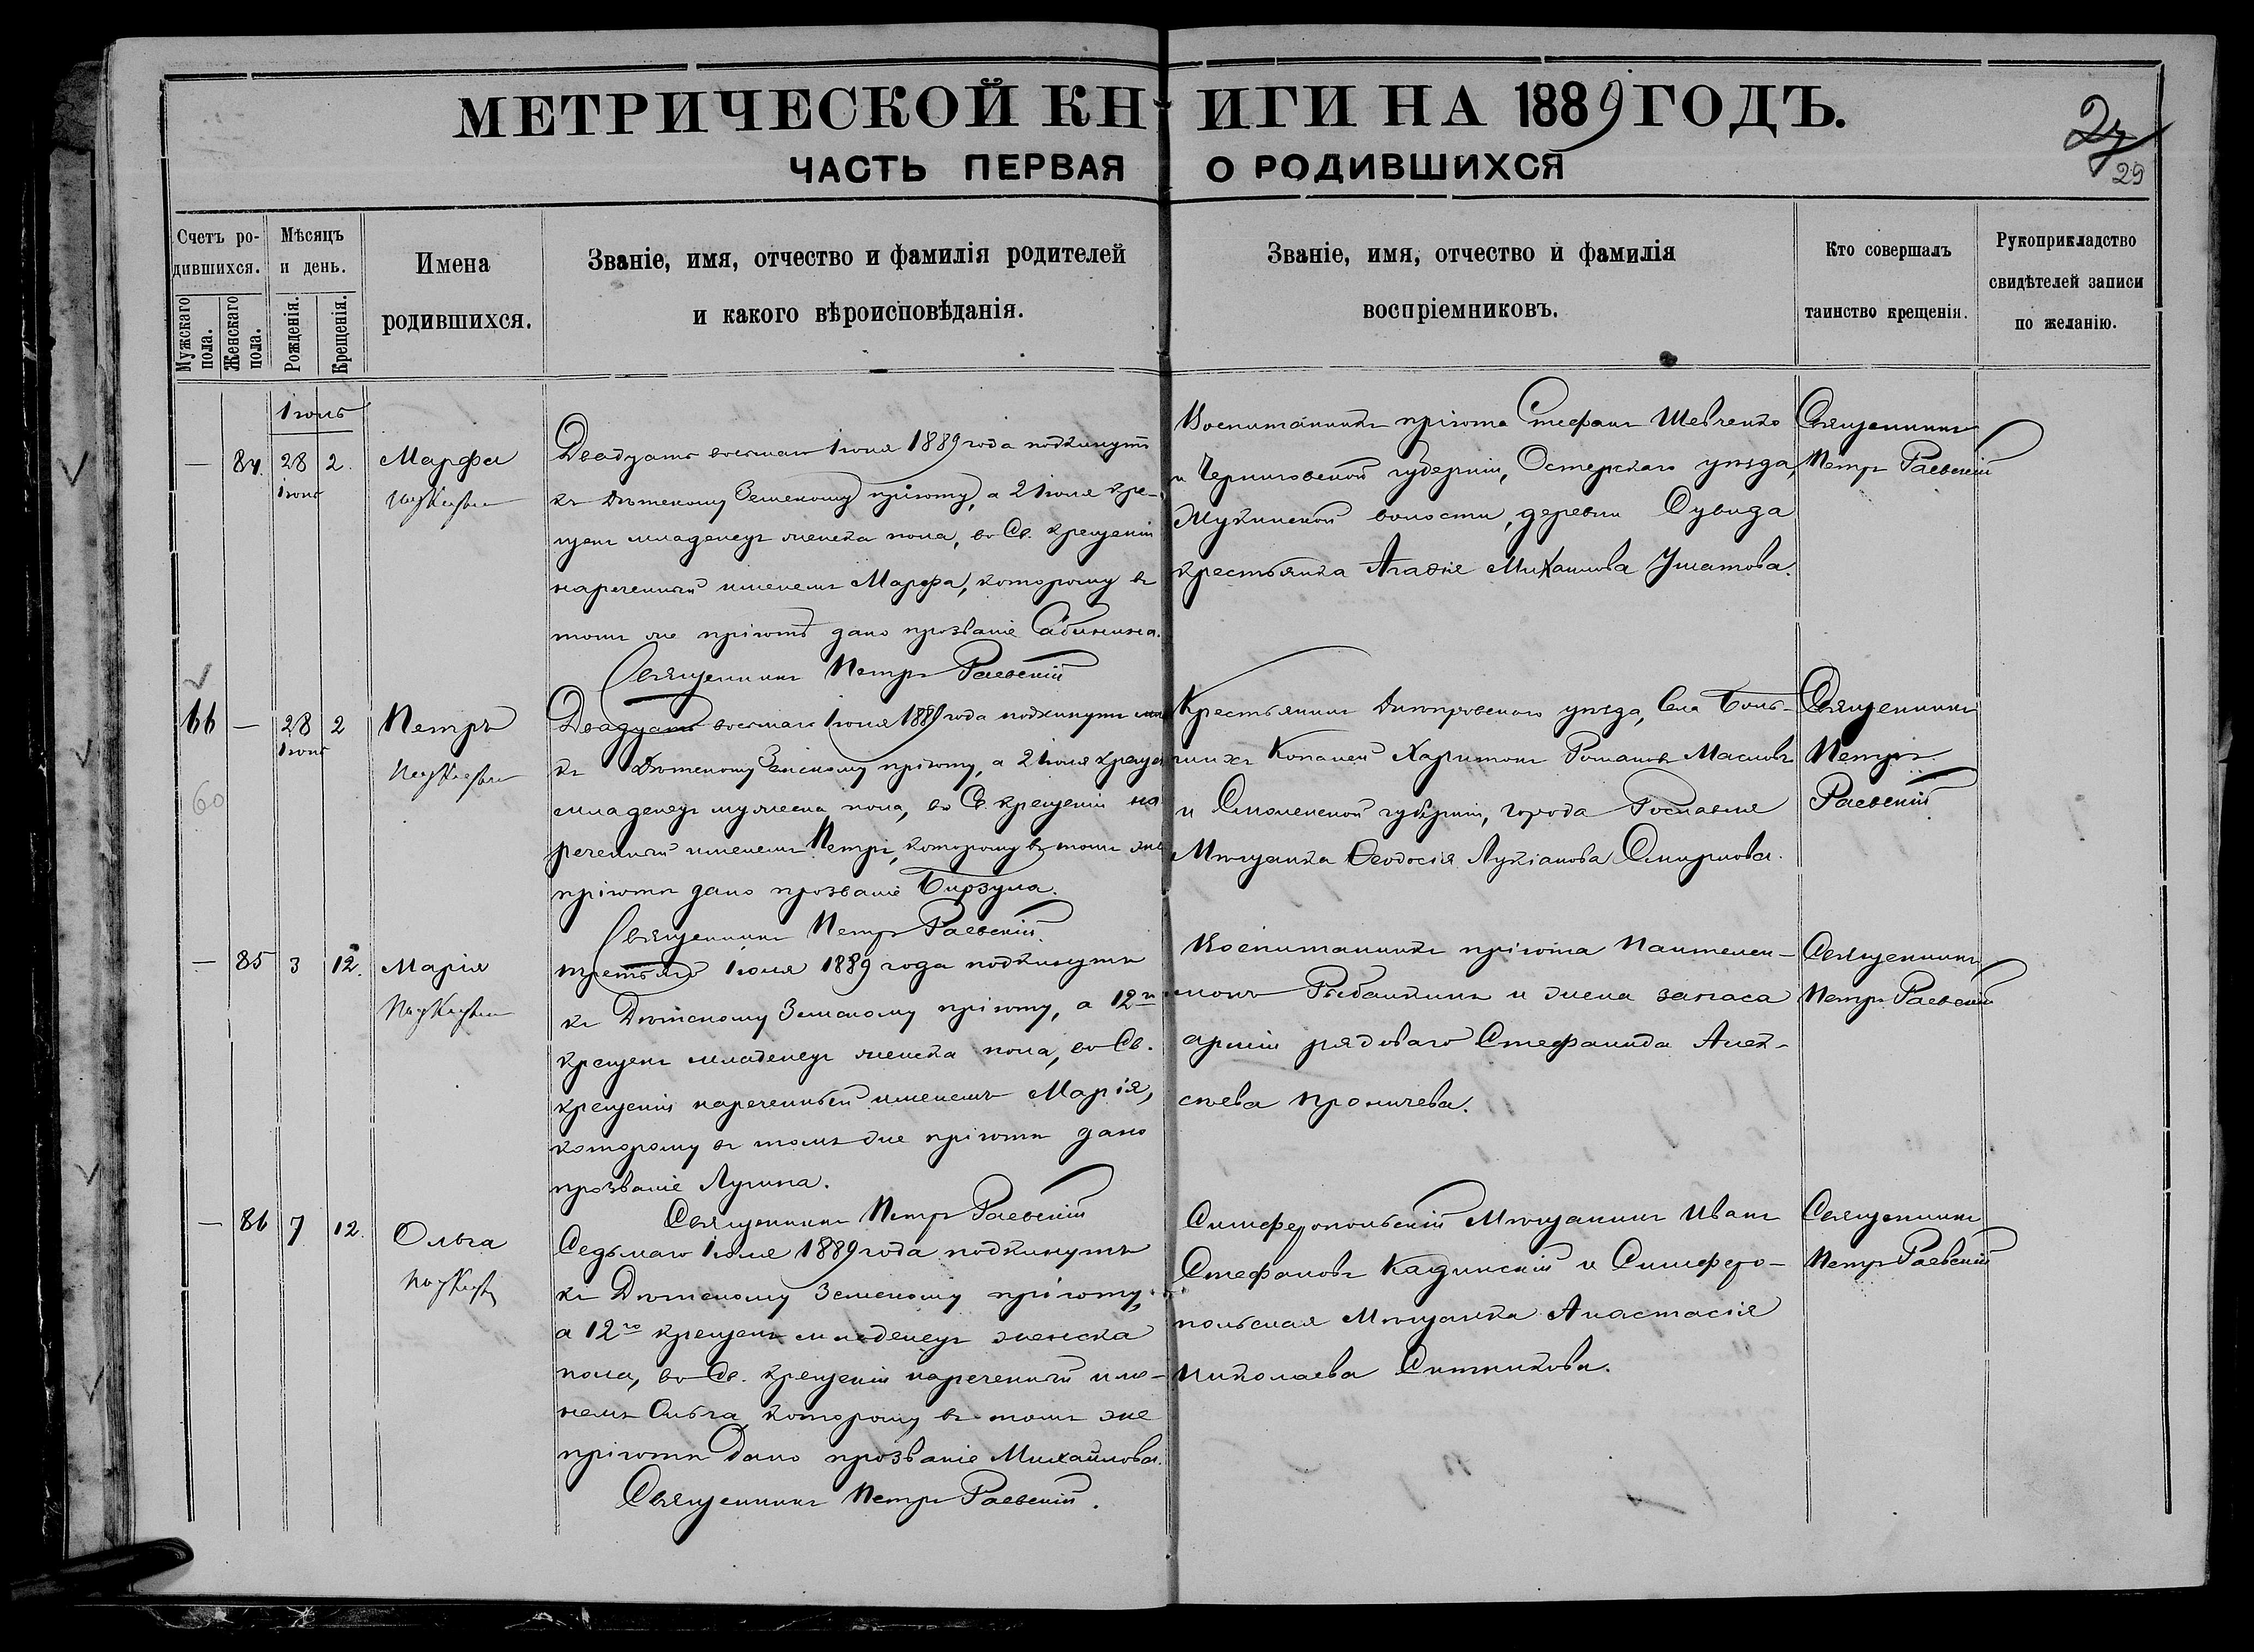 МЕТРИЧЕСКОЙ КНИГИ НА 1889 ГОДЪ.
27
29
ЧАСТЬ ПЕРВАЯ О РОДИВШИХСЯ
Счетъ родившихся.
Мужскаго пола.
Женскаго пола.
Мѣсяцъ и день.
Рожденія.
Крещенія.
Имена
родившихся.
Званіе, имя, отчество и фамилія родителей
и какого вѣроисповѣданія.
Званіе, имя, отчество и фамилія
воспріемниковъ.
Кто совершалъ
таинство крещенія.
Рукоприкладство
свидѣтелей записи
по желанію.
Іюль
— 84. 28 2. Марфа
Іюнь
Двадцать восьмаго Іюня 1889 года подкинутъ
къ Дѣтскому Земскому пріюту, а 2 Іюля кре-
щенъ младенецъ женска пола, во Св. крещеніи
нареченный именемъ Марфа, которому въ
томъ же пріютѣ дано прозваніе Сабинина.
Священникъ Петръ Раевскій
Воспитанникъ пріюта Стефанъ Шевченко
и Черниговской губерніи, Остерскаго уѣзда,
Жукинской волости, деревни Сувида
крестьянка Агафія Михаилова Ушатова.
Священникъ
Петръ Раевскій
66 — 28 2 Петръ
Іюнь
60
Двадцать восьмаго Іюня 1889 года подкинутъ
къ Дѣтскому Земскому пріюту, а 2 Іюля крещенъ
младенецъ мужеска пола, во Св. крещеніи на-
реченный именемъ Петръ, которому въ томъ же
пріютѣ дано прозваніе Бирзула.
Священникъ Петръ Раевскій.
Крестьянинъ Днѣпровскаго уѣзда, Села Боль-
шихъ Копаней Харитонъ Романовъ Масловъ
и Смоленской губерніи, города Рославля
Мѣщанка Ѳеодосія Лукіанова Смирнова.
Священникъ
Петръ
Раевскій
— 85 3 12. Марія
третьяго Іюля 1889 года подкинутъ
къ Дѣтскому Земскому пріюту, а 12го
крещенъ младенецъ женска пола, во Св.
крещеніи нареченный именемъ Марія,
которому въ томъ же пріютѣ дано
прозваніе Лунина.
Священникъ Петръ Раевскій
Воспитанникъ пріюта Пантелей-
монъ Рыбалкинъ и жена запаса
арміи рядоваго Стефанида Алек-
сѣева Проничева.
Священникъ
Петръ Раевскій
— 86 7 12. Ольга
Седьмаго Іюля 1889 года подкинутъ
къ Дѣтскому Земскому пріюту,
а 12го крещенъ младенецъ женска
пола, во Св. крещеніи нареченный име-
немъ Ольга, которому въ томъ же
пріютѣ дано прозваніе Михайлова.
Священникъ Петръ Раевскій.
Симферопольскій Мѣщанинъ Иванъ
Стефановъ Кадинскій и Симферо-
польская Мѣщанка Анастасія
Николаева Ситникова.
Священникъ
Петръ Раевскій